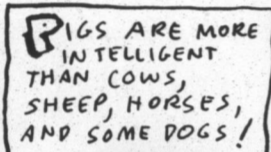 PIGS ARE MORE
INTELLIGENT
THAN COWS,
SHEEP, HORSES,
AND SOME DOGS!